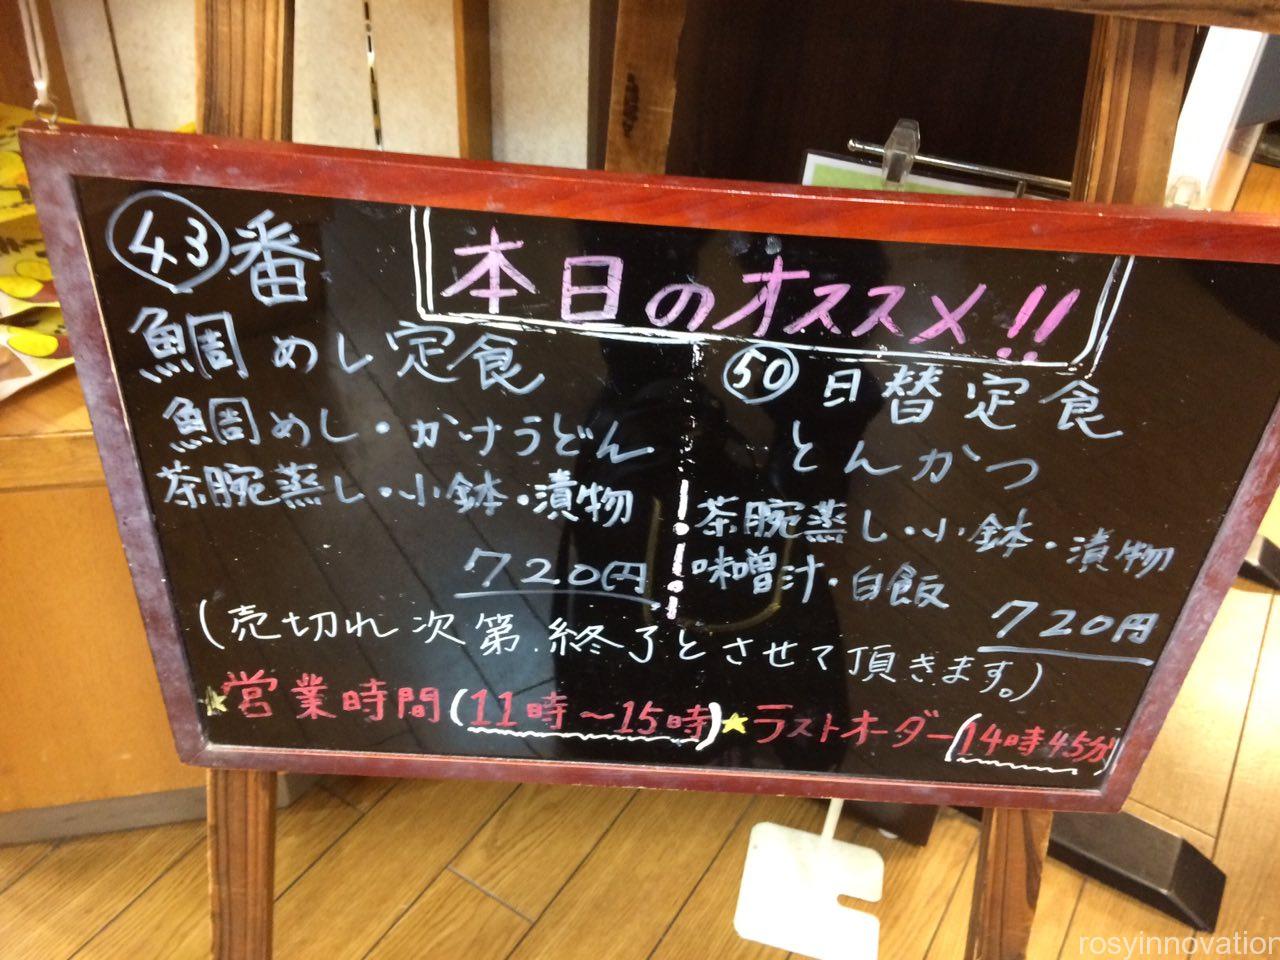 本日のオススメ!!
43番
鯛めし定食
鯛めし・かけうどん
茶腕蒸し・小鉢・漬物
720円
50 日替定食
とんかつ
茶腕蒸し・小鉢・漬物
味噌汁・白飯
720円
(売切れ次第終了とさせて頂きます。)
★営業時間(11時〜15時)★ラストオーダー(14時45分)
rosyinnovation